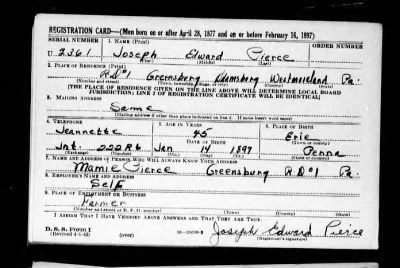 REGISTRATION CARD—(Men born on or after April 28, 1877 and on or before February 16, 1897)
SERIAL NUMBER 1. NAME (Print) ORDER NUMBER
U 2361 Joseph Edward Pierce
(First) (Middle) (Last)
2. PLACE OF RESIDENCE (Print)
R.D#1 Greensburg Westmoreland Pa.
(Number and street) (Town, township, village, or city) (County) (State)
[THE PLACE OF RESIDENCE GIVEN ON THE LINE ABOVE WILL DETERMINE LOCAL BOARD
JURISDICTION; LINE 2 OF REGISTRATION CERTIFICATE WILL BE IDENTICAL]
3. MAILING ADDRESS
Same
[Mailing address if other than place indicated on line 2. If same insert word same]
4. TELEPHONE 5. AGE IN YEARS 6. PLACE OF BIRTH
Jeannette 45 Erie
DATE OF BIRTH (Town or county)
Jnt. 222R6 Jan 14 1897 Penna
(Exchange) (Number) (Mo.) (Day) (Yr.) (State or country)
7. NAME AND ADDRESS OF PERSON WHO WILL ALWAYS KNOW YOUR ADDRESS
Mamie Pierce Greensburg R.D#1 Pa.
8. EMPLOYER'S NAME AND ADDRESS
Self
9. PLACE OF EMPLOYMENT OR BUSINESS
Farmer
(Number and street or R. F. D. number) (Town) (County) (State)
I AFFIRM THAT I HAVE VERIFIED ABOVE ANSWERS AND THAT THEY ARE TRUE.
D. S. S. Form 1
(Revised 4-1-42) (over) Joseph Edward Pierce
(Registrant's signature)